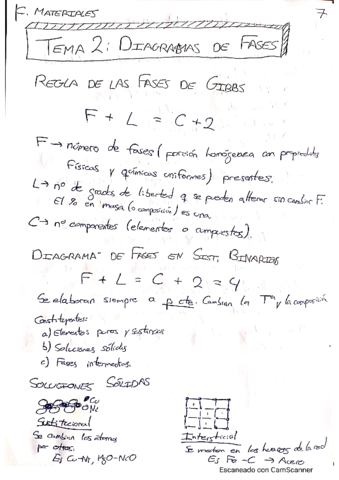 F. MATERIALES
7
TEMA 2: DIAGRAMAS DE FASES
REGLA DE LAS FASES DE GIBBS
F + L = C + 2
F → número de fases (porción homogénea con propiedades
físicas y químicas uniformes) presentes.
L → nº de grados de libertad q se pueden alterar sin cambiar F.
El % en masa (o composición) es una.
C → nº componentes (elementos o compuestos).
DIAGRAMA DE FASES EN SIST. BINARIOS
F + L = C + 2 = 4
Se elaboran siempre a p cte. Cambian la Tª y la composición
Constituyentes:
a) Elementos puros y sustancias
b) Soluciones sólidas
c) Fases intermedias.
SOLUCIONES SÓLIDAS
Cu
Ni
Sustitucional
Se cambian los átomos
por otros.
Ej Cu-Ni, MgO-NiO
Intersticial
Se meten en los huecos de la red
Ej Fe-C → Acero
Escaneado con CamScanner